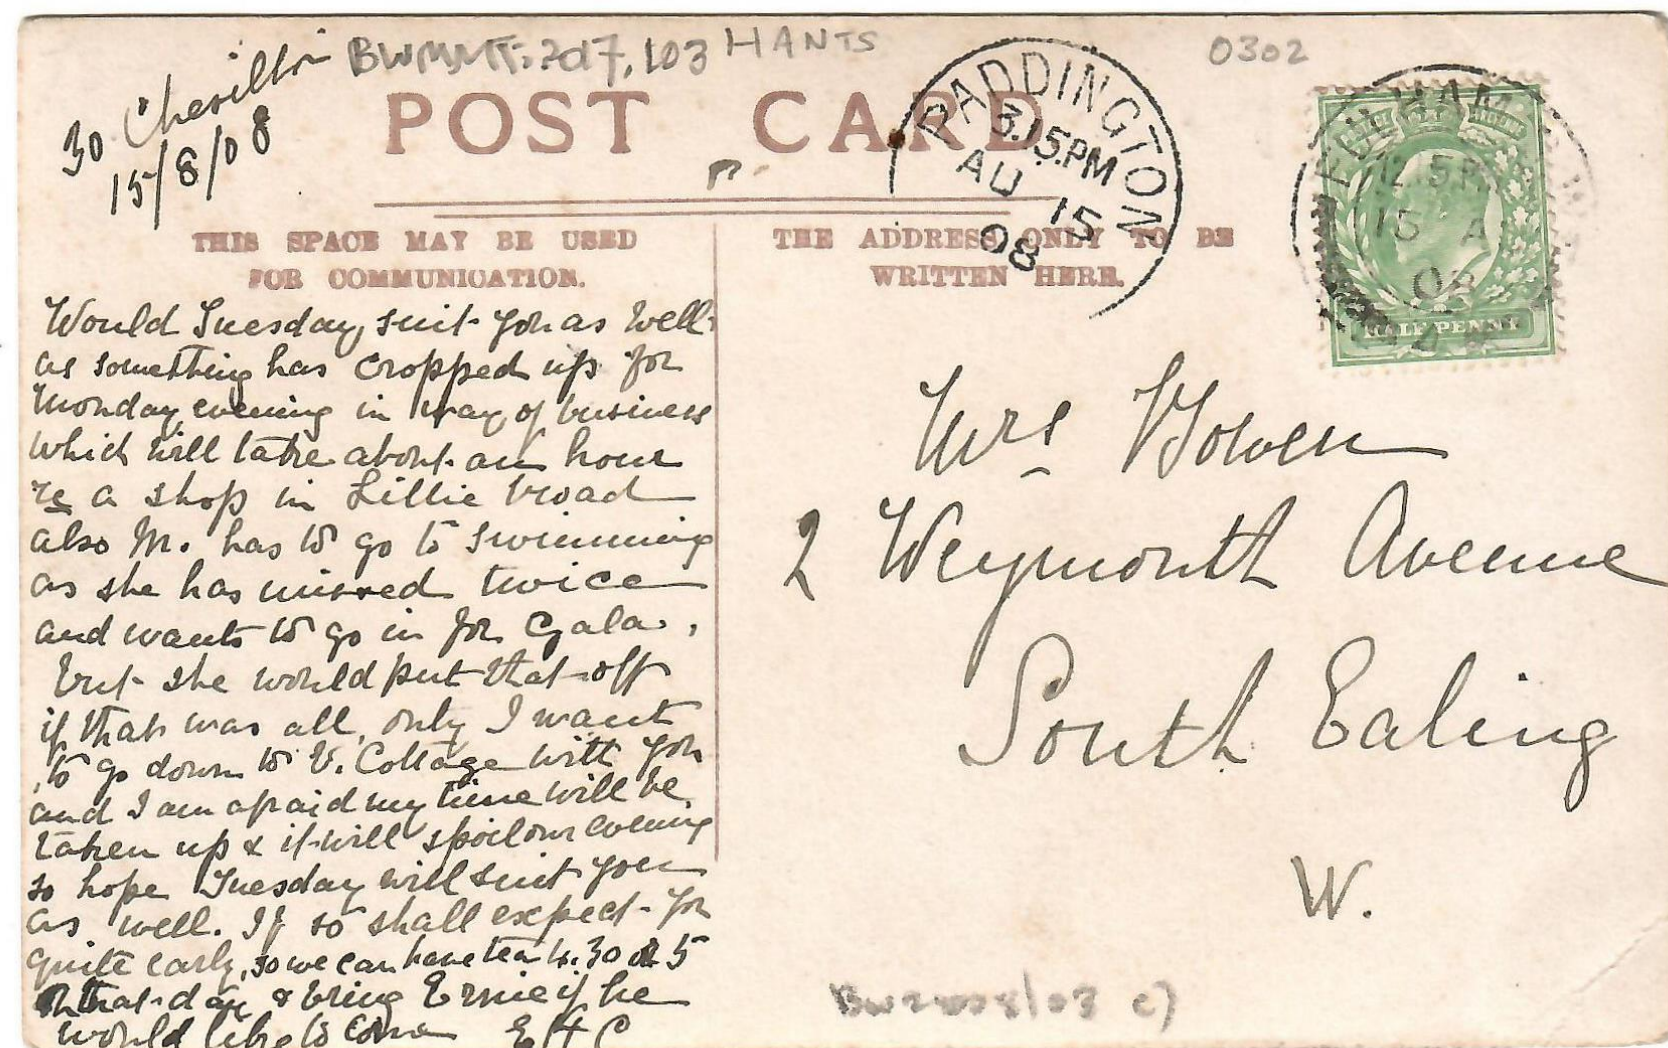 30 Chesilton
15/8/08
HANTS
0302
POST CARD
PADDINGTON
3.15.PM
AU 15
08
12.5 PM
15 A
08
HALF PENNY
THIS SPACE MAY BE USED
FOR COMMUNICATION.
THE ADDRESS ONLY TO BE
WRITTEN HERE.
Would Tuesday, suit you as well
as something has cropped up for
Monday evening in way of business
which will take about an hour
re a shop in Lillie Road
also M. has to go to swimming
as she has missed twice
and wants to go in for Gala.
but she would put that off
if that was all, only I want
to go down to V. Cottage with you
and I am afraid my time will be
taken up & it will spoil our evening
so hope Tuesday will suit you
as well. If so shall expect you
quite early, so we can have tea 4.30 or 5
that day & bring Ernie if he
would like to come
Mrs Bowen
2 Weymouth Avenue
South Ealing
W.